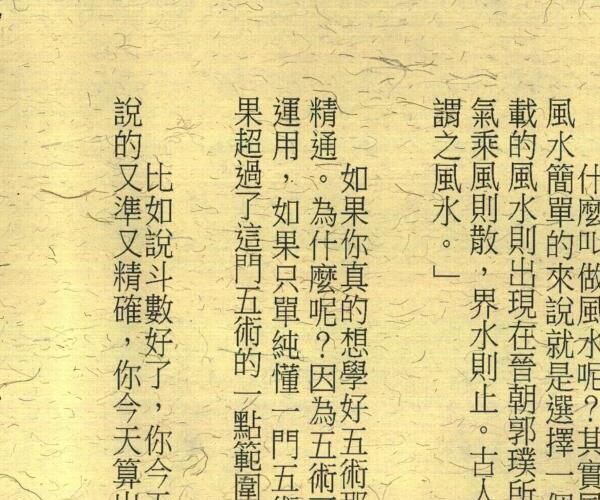 什麼叫做風水呢？其實
風水簡單的來說就是選擇一個
載的風水則出現在晉朝郭璞所
氣乘風則散，界水則止。古人
謂之風水。」
如果你真的想學好五術那
精通。為什麼呢？因為五術
運用，如果只單純懂一門五術
果超過了這門五術的一點範圍
比如說斗數好了，你今天
說的又準又精確，你今天算出